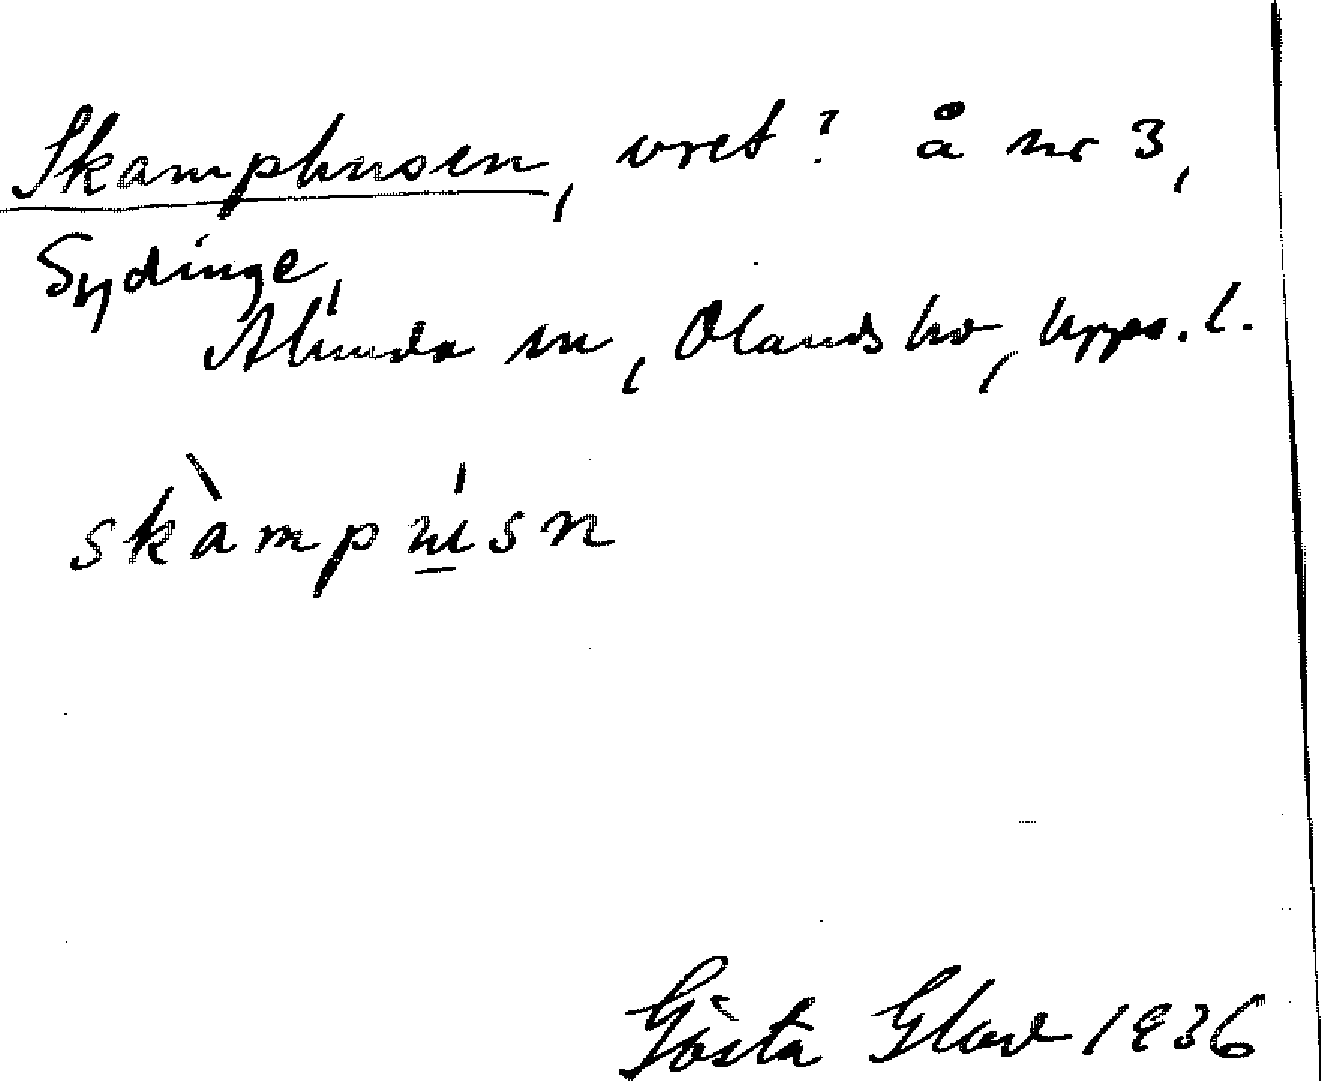 Skamphusen, vret? å nr 3,
Sydinge,
Alunda sn, Olands hd, Upps. l.
skàmpú̲sn
Gösta Glad 1936